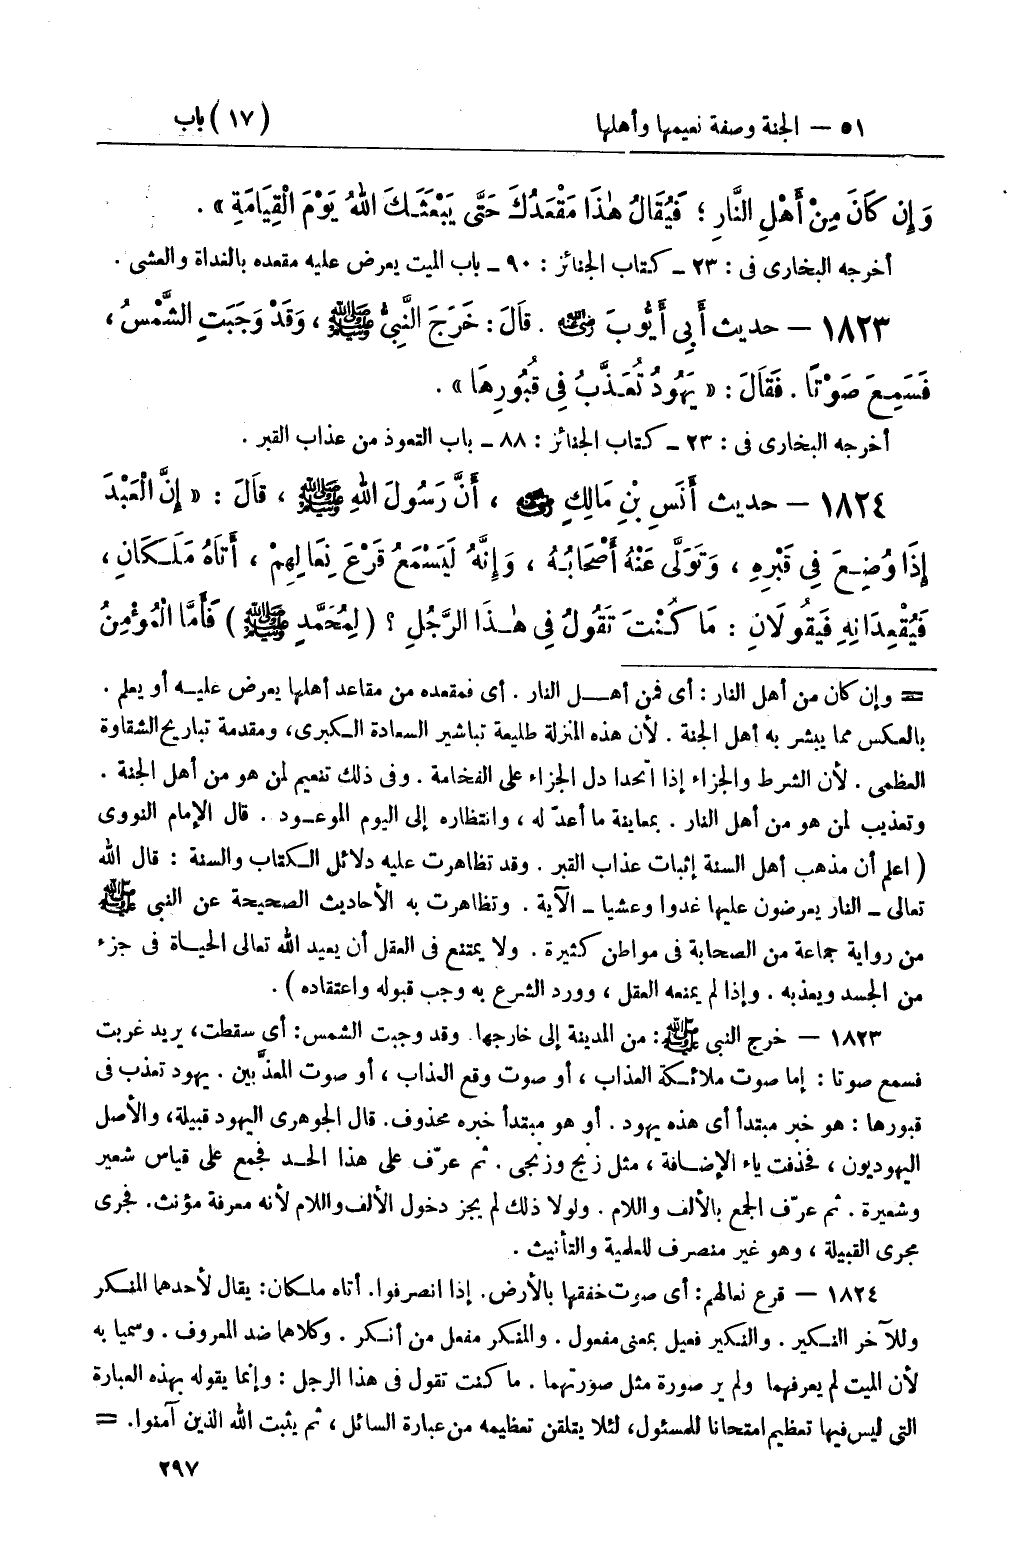 ٥١ – الجنة وصفة نعيمها وأهلها (١٧) باب
وَإِن كَانَ مِنْ أَهْلِ النَّارِ ؛ فَيُقَالُ هٰذَا مَقْعَدُكَ حَتَّى يَبْعَثَكَ اللهُ يَوْمَ الْقِيَامَةِ » .
أخرجه البخارى فى : ٢٣ ــ كتاب الجنائز : ٩٠ ــ باب الميت يعرض عليه مقعده بالغداة والعشى .
١٨٢٣ – حديث أَبِي أَيُّوبَ رضي الله عنه . قَالَ : خَرَجَ النَّبِيُّ ﷺ ، وَقَدْ وَجَبَتِ الشَّمْسُ ،
فَسَمِعَ صَوْتًا . فَقَالَ : « يَهُودُ تُعَذَّبُ فِي قُبُورِهَا » .
أخرجه البخارى فى : ٢٣ ــ كتاب الجنائز : ٨٨ ــ باب التعوذ من عذاب القبر .
١٨٢٤ – حديث أَنَسِ بْنِ مَالِكٍ رضي الله عنه ، أَنَّ رَسُولَ اللهِ ﷺ ، قَالَ : « إِنَّ الْعَبْدَ
إِذَا وُضِعَ فِي قَبْرِهِ ، وَتَوَلَّى عَنْهُ أَصْحَابُهُ ، وَإِنَّهُ لَيَسْمَعُ قَرْعَ نِعَالِهِمْ ، أَتَاهُ مَلَكَانِ ،
فَيُقْعِدَانِهِ فَيَقُولَانِ : مَا كُنْتَ تَقُولُ فِي هٰذَا الرَّجُلِ ؟ ( لِمُحَمَّدٍ ﷺ ) فَأَمَّا الْمُؤْمِنُ
= وإن كان من أهل النار : أى فمن أهل النار . أى فمقعده من مقاعد أهلها يعرض عليه أو يعلم .
بالعكس مما يبشر به أهل الجنة . لأن هذه المنزلة طليعة تباشير السعادة الكبرى، ومقدمة تباريح الشقاوة
العظمى . لأن الشرط والجزاء إذا اتحدا دل الجزاء على الفخامة . وفى ذلك تنعيم لمن هو من أهل الجنة .
وتعذيب لمن هو من أهل النار . بمعاينة ما أعدّ له ، وانتظاره إلى اليوم الموعود . قال الإمام النووى
( اعلم أن مذهب أهل السنة إثبات عذاب القبر . وقد تظاهرت عليه دلائل الكتاب والسنة : قال الله
تعالى ــ النار يعرضون عليها غدوا وعشيا ــ الآية . وتظاهرت به الأحاديث الصحيحة عن النبى ﷺ
من رواية جماعة من الصحابة فى مواطن كثيرة . ولا يمتنع فى العقل أن يعيد الله تعالى الحياة فى جزء
من الجسد ويعذبه . وإذا لم يمنعه العقل ، وورد الشرع به وجب قبوله واعتقاده ) .
١٨٢٣ – خرج النبى ﷺ : من المدينة إلى خارجها. وقد وجبت الشمس: أى سقطت، يريد غربت
فسمع صوتا : إما صوت ملائكة العذاب ، أو صوت وقع العذاب ، أو صوت المعذَّبين . يهود تعذب فى
قبورها : هو خبر مبتدأ أى هذه يهود . أو هو مبتدأ خبره محذوف. قال الجوهرى اليهود قبيلة، والأصل
اليهوديون ، فحذفت ياء الإضافة ، مثل زنج وزنجى . ثم عرّف على هذا الحد فجمع على قياس شعير
وشعيرة . ثم عرّف الجمع بالألف واللام . ولولا ذلك لم يجز دخول الألف واللام لأنه معرفة مؤنث. فجرى
مجرى القبيلة ، وهو غير منصرف للعلمية والتأنيث .
١٨٢٤ – قرع نعالهم: أى صوت خفقها بالأرض. إذا انصرفوا. أتاه ملكان: يقال لأحدهما المنكر
وللآخر النكير . والنكير فعيل بمعنى مفعول . والمنكر مفعل من أنكر . وكلاهما ضد المعروف . وسميا به
لأن الميت لم يعرفهما ولم ير صورة مثل صورتهما . ما كنت تقول فى هذا الرجل : وإنما يقوله بهذه العبارة
التى ليس فيها تعظيم امتحانا للمسئول، لئلا يتلقن تعظيمه من عبارة السائل ، ثم يثبت الله الذين آمنوا. =
٢٩٧